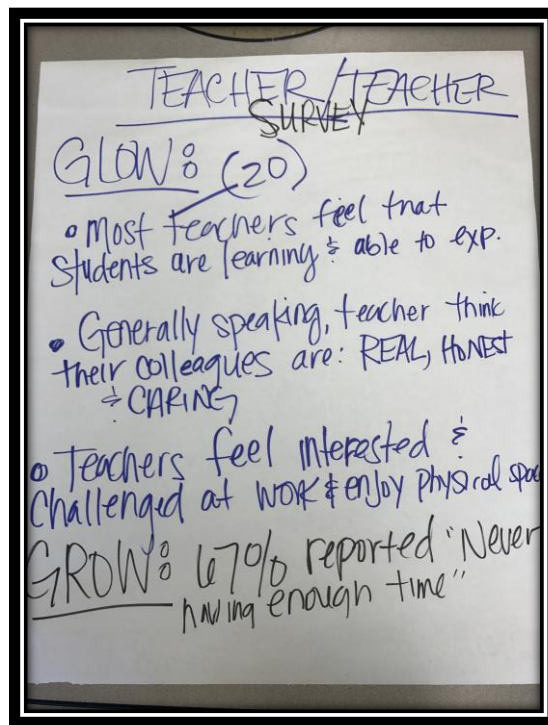 TEACHER/TEACHER
SURVEY
GLOW: (20)
• Most teachers feel that
students are learning & able to exp.
• Generally speaking, teacher think
their colleagues are: REAL, HONEST
& CARING
• Teachers feel interested &
challenged at work & enjoy physical spac
GROW: 67% reported "Never
having enough time"